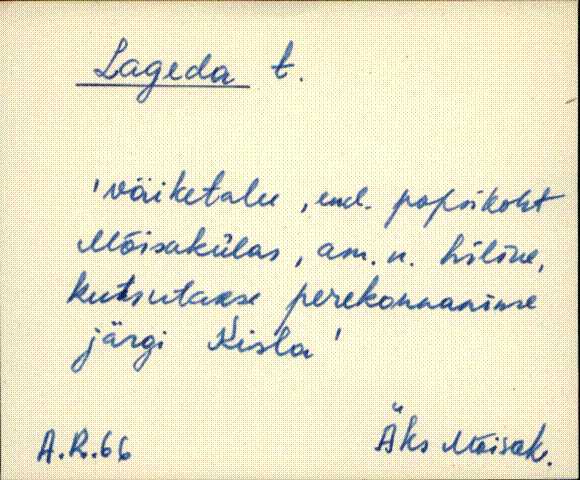 Lageda t.
'väiketalu, end. popsikoht
Mõisakülas, am. n. hiline,
kutsutakse perekonnanime
järgi Kisla'
A.R.66
Äks Mõisak.